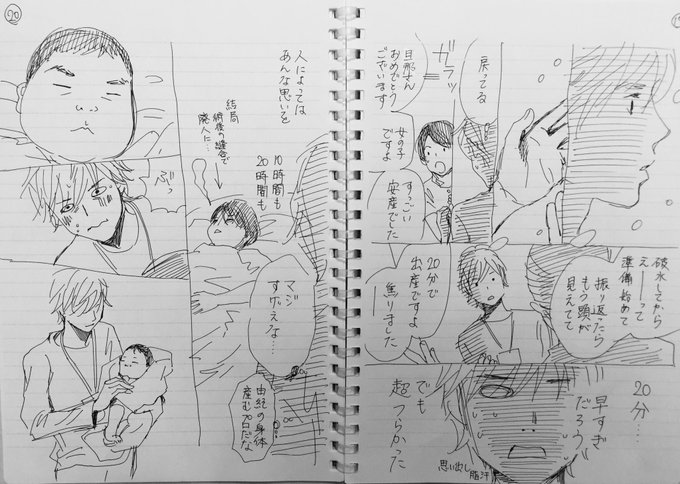 戻ってる
ガラッ
旦那さん
おめでとう
ございます
女の子
ですよ
すっごい
安産でした
破水してから
えーーって
準備始めて
振り返ったら
もう頭が
見えてて
20分で
出産ですよ
焦りました
20分…
早すぎ
だろう
でも
超つらかった
思い出し
脂汗
20
人によっては
あんな思いを
10時間も
20時間も
結局
術後の縫合で
廃人に…
マジ
すげぇな…
由紀の身体
産むプロだな
ぶっ